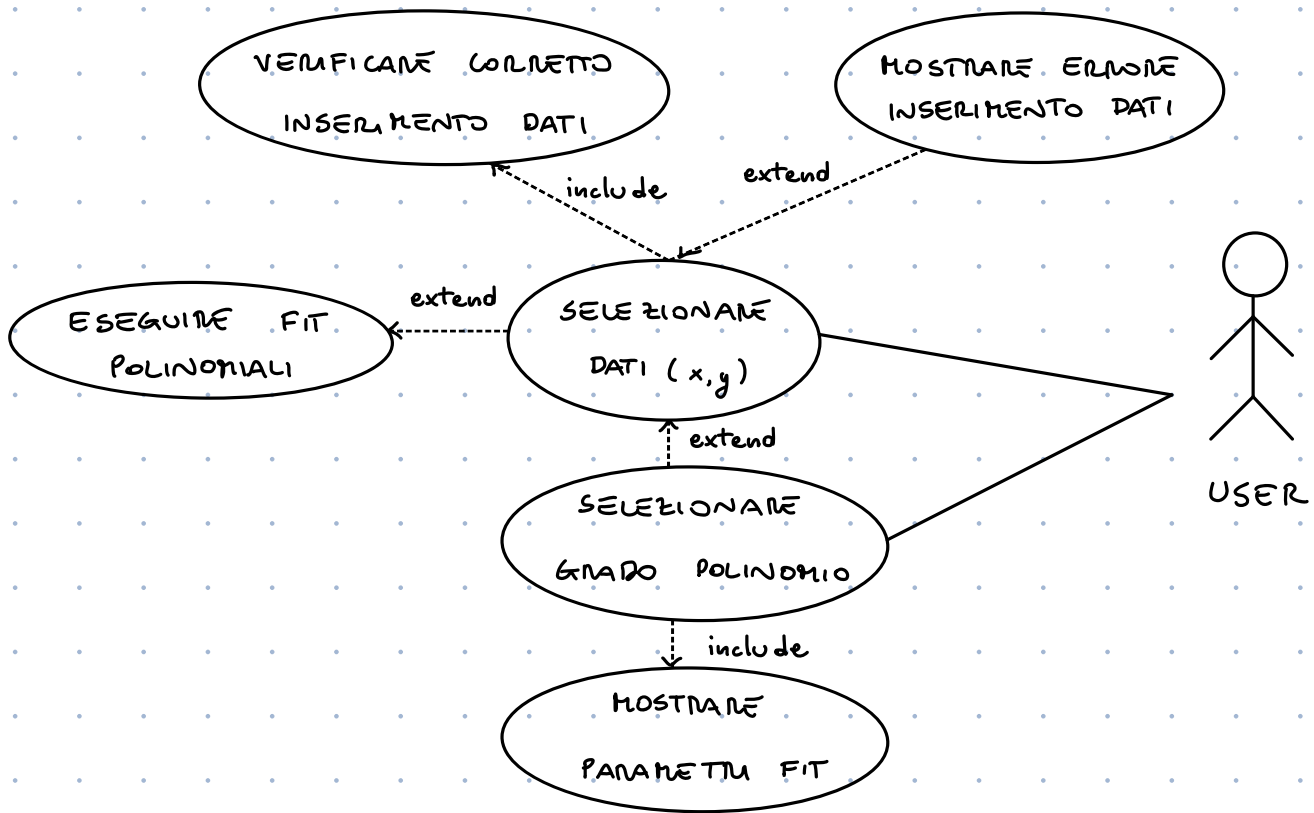 VERIFICARE CORRETTO
INSERIMENTO DATI
MOSTRARE ERRORE
INSERIMENTO DATI
include
extend
ESEGUIRE FIT
POLINOMIALI
extend
SELEZIONARE
DATI (x,y)
extend
SELEZIONARE
GRADO POLINOMIO
USER
include
MOSTRARE
PARAMETRI FIT